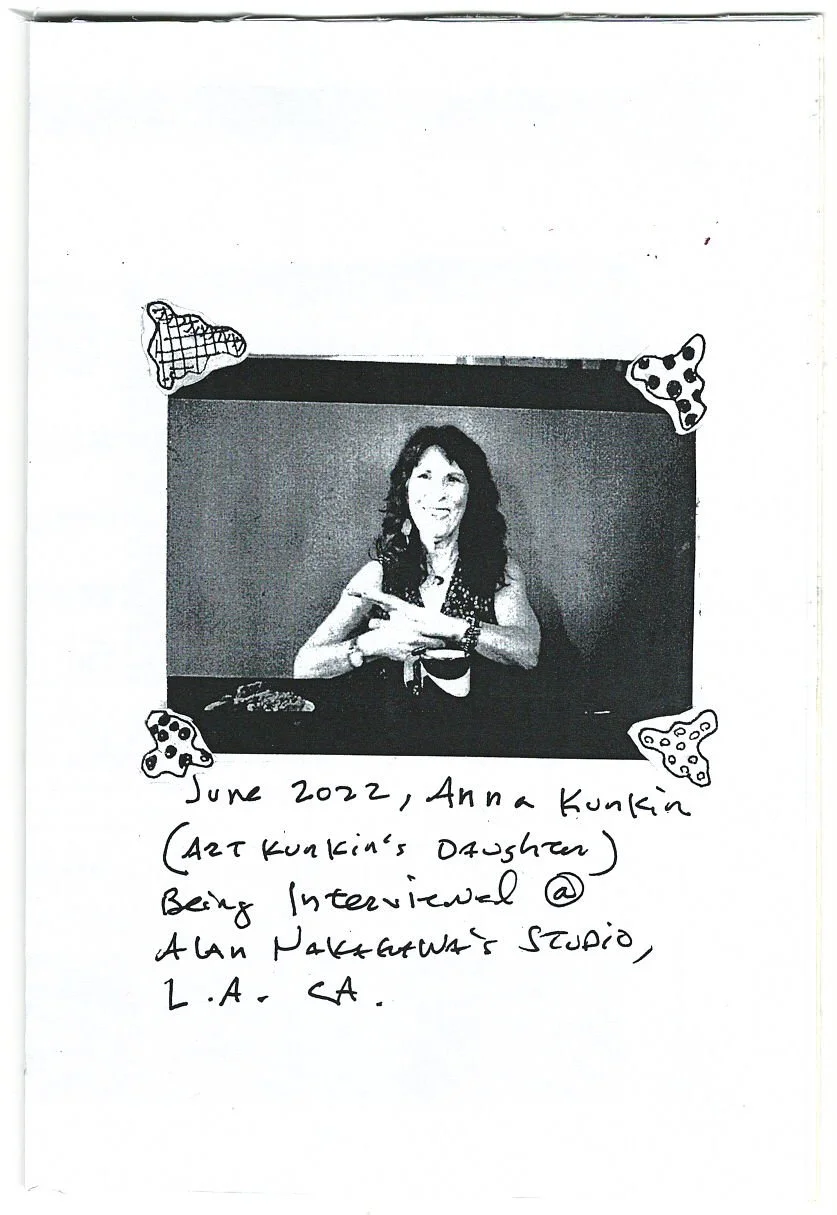 June 2022, Anna Kunkin
(ART Kunkin's Daughter)
Being Interviewed @
Alan Nakagawa's Studio,
L.A. CA.